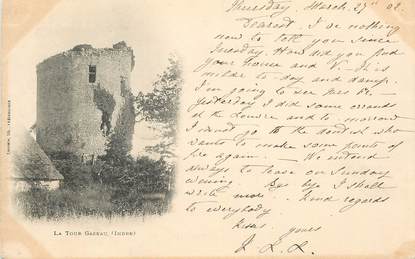 Thursday, March 27th 02
Dearest. I've nothing
now to tell you since
Tuesday. How did you find
your house and V. It is
milde to day and damp.
I'm going to see
yesterday I did some errands
at the Louvre and to-morrow
I must go to the dentist who
wants to make some points of
fire again. We intend
always to leave on Sunday
evening. By bye I shall
write more. Kind regards
to everybody.
Kisses. yours
J. L. L.
LA TOUR GAZEAU, (INDRE)